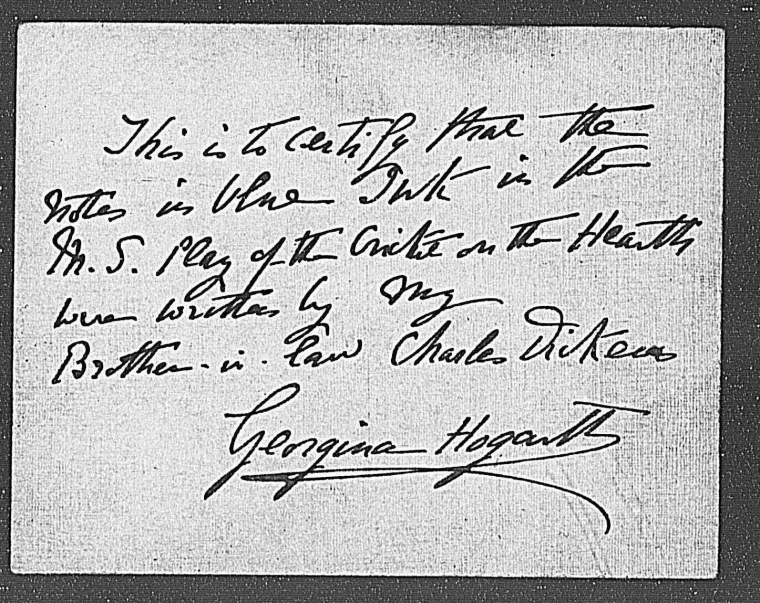 This is to certify that the
notes in blue Ink in the
M.S. Play of the Cricket on the Hearth
were written by my
Brother-in-law Charles Dickens
Georgina Hogarth